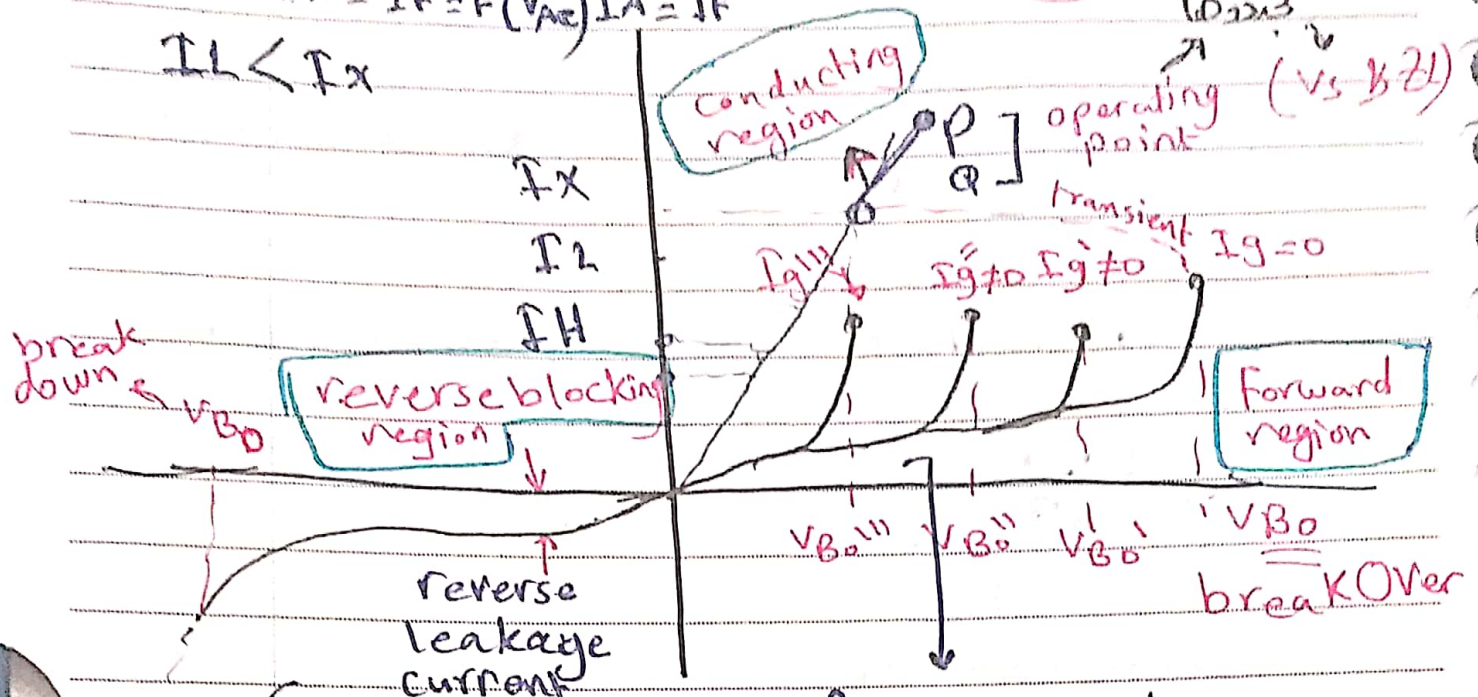 IL < Ix
conducting
region
P
Q
operating
point
(Vs & ZL)
Ix
transient
IL
Ig'''
Ig''≠0
Ig'≠0
Ig=0
IH
break
down
VBD
reverse blocking
region
Forward
region
VBo'''
VBo''
VBo'
VBo
breakOver
reverse
leakage
current